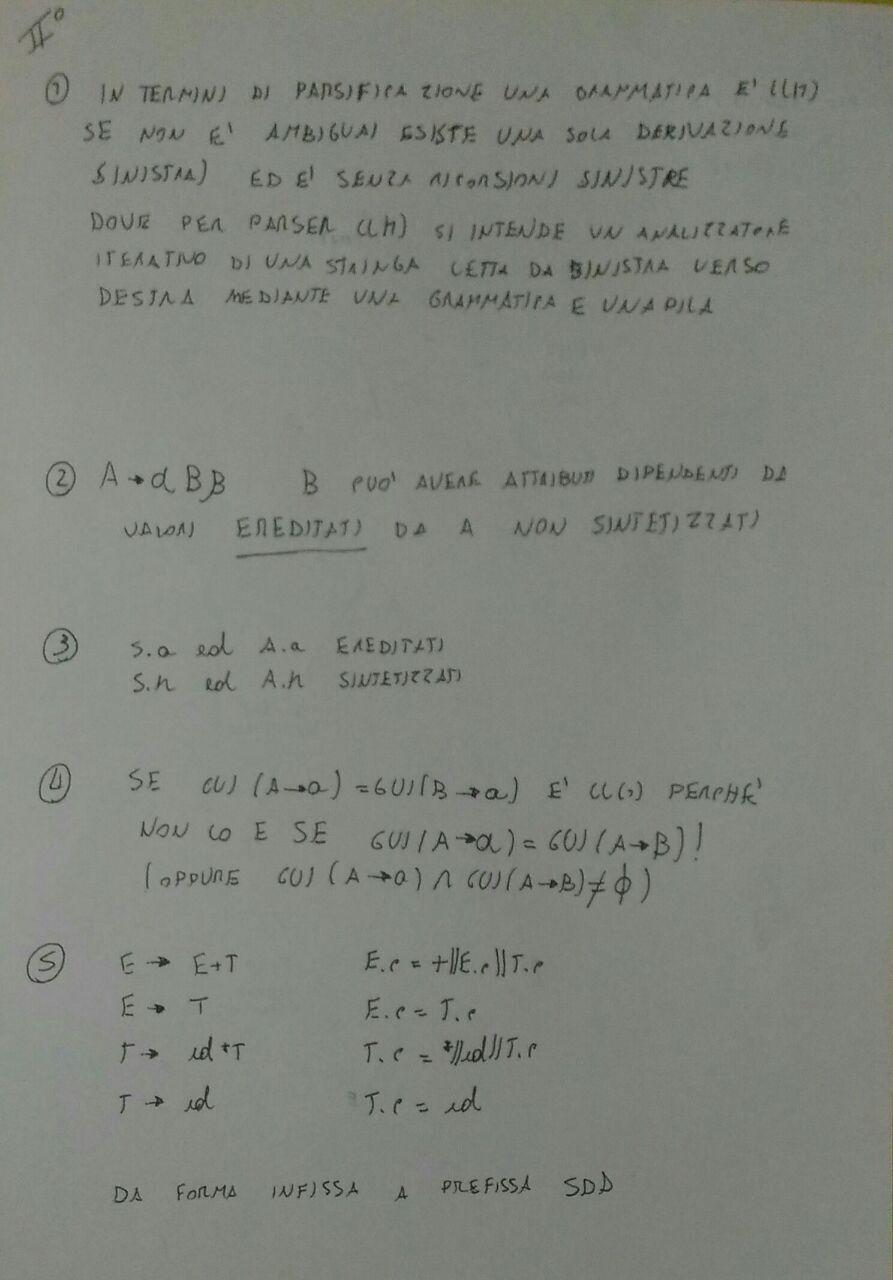 II°
① IN TERMINI DI PARSIFICAZIONE UNA GRAMMATICA E' LL(1)
SE NON E' AMBIGUA( ESISTE UNA SOLA DERIVAZIONE
SINISTRA) ED E' SENZA RICORSIONI SINISTRE
DOVE PER PARSER LL(1) SI INTENDE UN ANALIZZATORE
ITERATIVO DI UNA STRINGA LETTA DA SINISTRA VERSO
DESTRA MEDIANTE UNA GRAMMATICA E UNA PILA
② A → α B β B PUO' AVERE ATTRIBUTI DIPENDENTI DA
VALORI EREDITATI DA A NON SINTETIZZATI
③ S.a ed A.a EREDITATI
S.h ed A.h SINTETIZZATI
④ SE GUI (A → α) = GUI (B → α) E' LL(1) PERCHE'
NON LO E SE GUI (A → α) = GUI (A → B) !
(OPPURE GUI (A → α) ∩ GUI (A → B) ≠ ϕ )
⑤ E → E+T E.p = +||E.p||T.p
E → T E.p = T.p
T → id *T T.p = *||id||T.p
T → id T.p = id
DA FORMA INFISSA A PREFISSA SDD